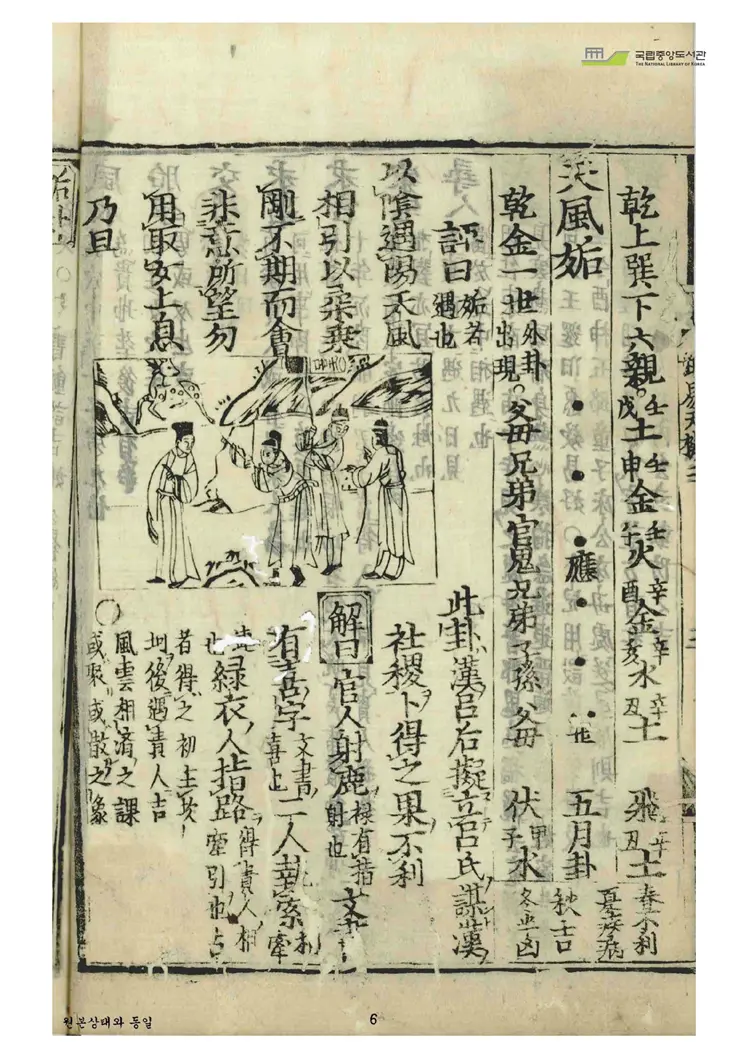 국립중앙도서관
THE NATIONAL LIBRARY OF KOREA
乾上巽下六親 壬戌土 壬申金 壬午火 辛酉金 辛亥水 辛丑土 飛辛丑土 春不利
夏疾病
天風姤 應 世 五月卦 秋吉
乾金一世外卦出現。父母兄弟官鬼兄弟子孫父母 伏甲子水 冬凶
評曰姤者遇也
以陰遇陽天風
相引以柔乘
剛不期而會
非意所望勿
用取女上息
乃且
此卦漢呂后擬立呂氏謀漢
社稷卜得之果不利
解曰 官人射鹿祿有指射也 文
有喜字文書喜上 二人執索牽
也 綠衣人指路得貴人相牽引也占
者得之初主坎
坷後遇貴人吉
○
風雲相濟之課
或聚或散之象
원본상태와 동일
6